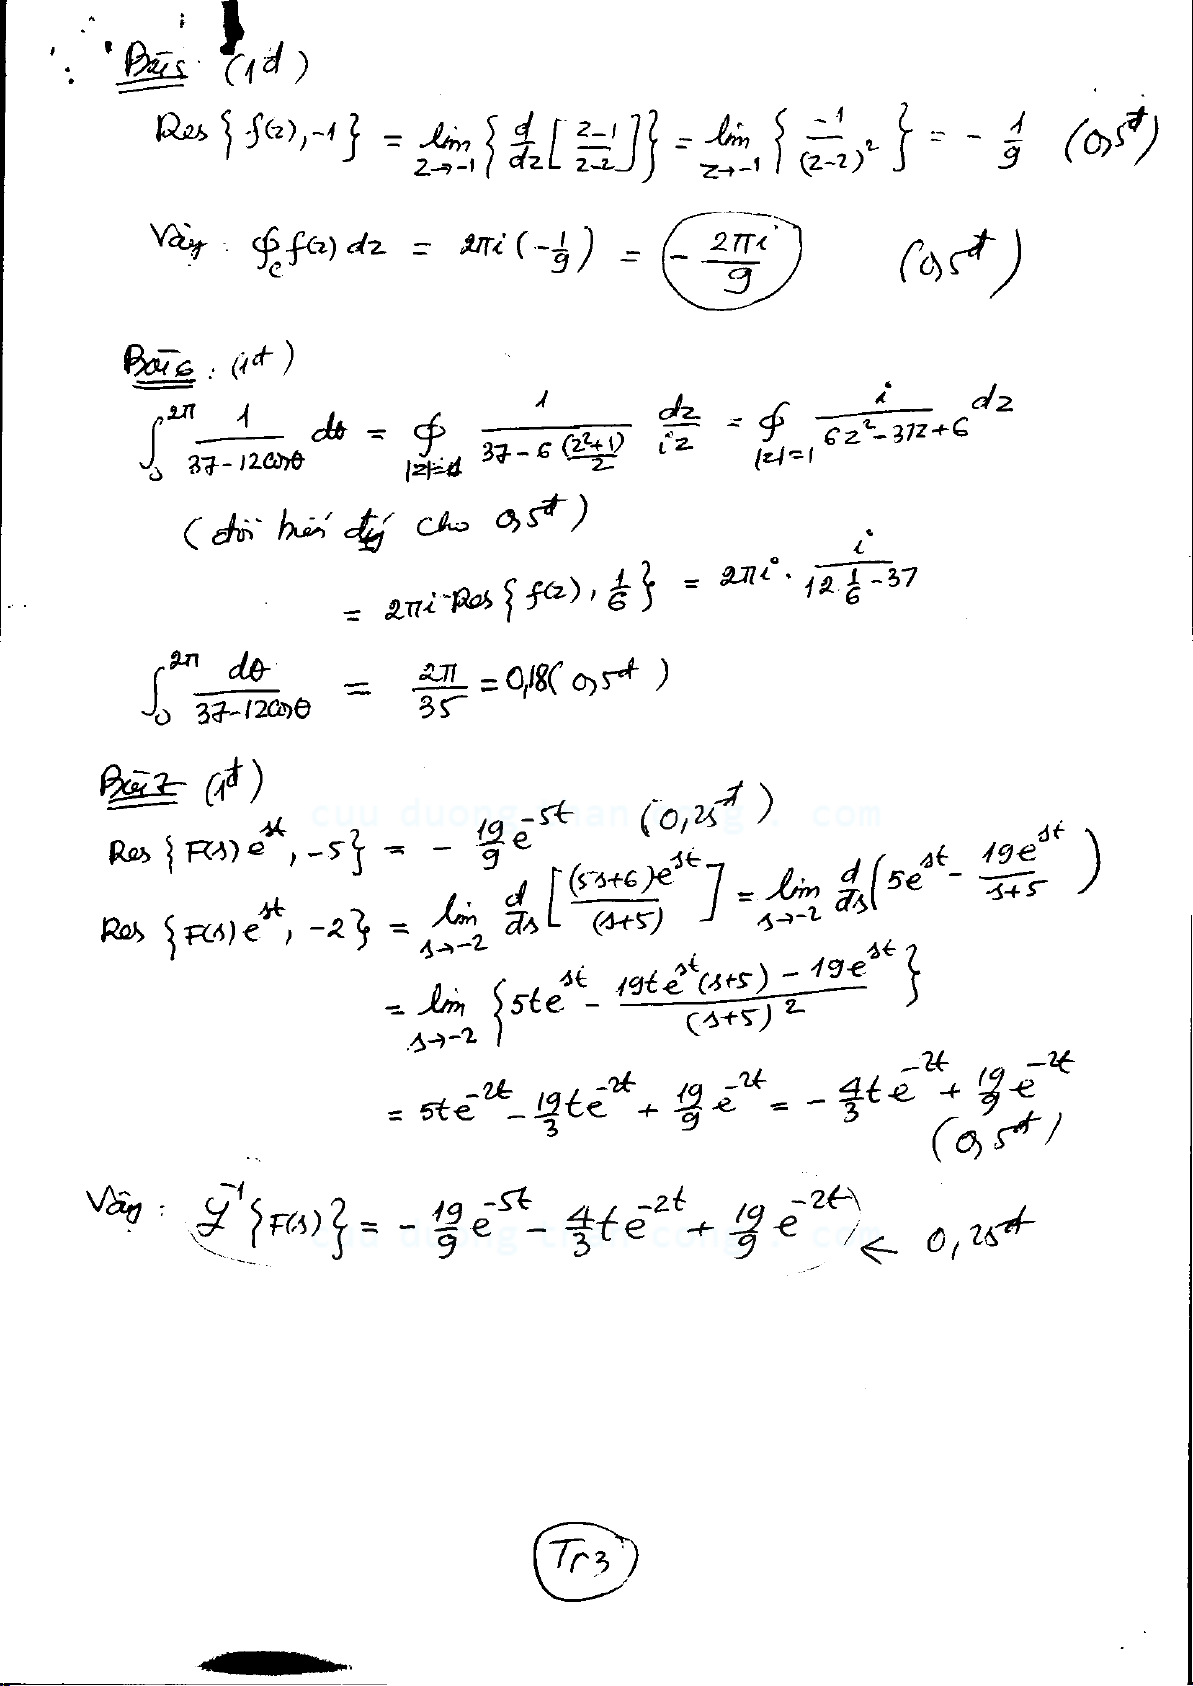 Bài 5 (1đ)
Res { f(z), -1 } = lim_{z→-1} { d/dz [ (z-1)/(z-2) ] } = lim_{z→-1} { -1/(z-2)² } = - 1/9 (0,5đ)
Vậy: ∮_c f(z) dz = 2πi (-1/9) = - 2πi/9 (0,5đ)
Bài 6 : (1đ)
∫_0^{2π} 1/(37-12cosθ) dθ = ∮_{|z|=1} 1/(37-6(z²+1)/2) dz/(iz) = ∮_{|z|=1} i/(6z²-37z+6) dz
(đổi biến đúng cho 0,5đ)
= 2πi Res { f(z), 1/6 } = 2πi . i/(12.1/6-37)
∫_0^{2π} dθ/(37-12cosθ) = 2π/35 = 0,18 (0,5đ)
Bài 7 (1đ)
Res { F(s) e^{st}, -5 } = - 19/9 e^{-5t} (0,25đ)
Res { F(s) e^{st}, -2 } = lim_{s→-2} d/ds [ (5s+6)e^{st}/(s+5) ] = lim_{s→-2} d/ds ( 5e^{st} - 19e^{st}/(s+5) )
= lim_{s→-2} { 5te^{st} - (19te^{st}(s+5) - 19e^{st})/(s+5)² }
= 5te^{-2t} - 19/3 te^{-2t} + 19/9 e^{-2t} = - 4/3 te^{-2t} + 19/9 e^{-2t}
(0,5đ)
Vậy : ℒ^{-1} { F(s) } = - 19/9 e^{-5t} - 4/3 te^{-2t} + 19/9 e^{-2t} ← 0,25đ
Tr3
cuu duong than cong . com
cuu duong than cong . com